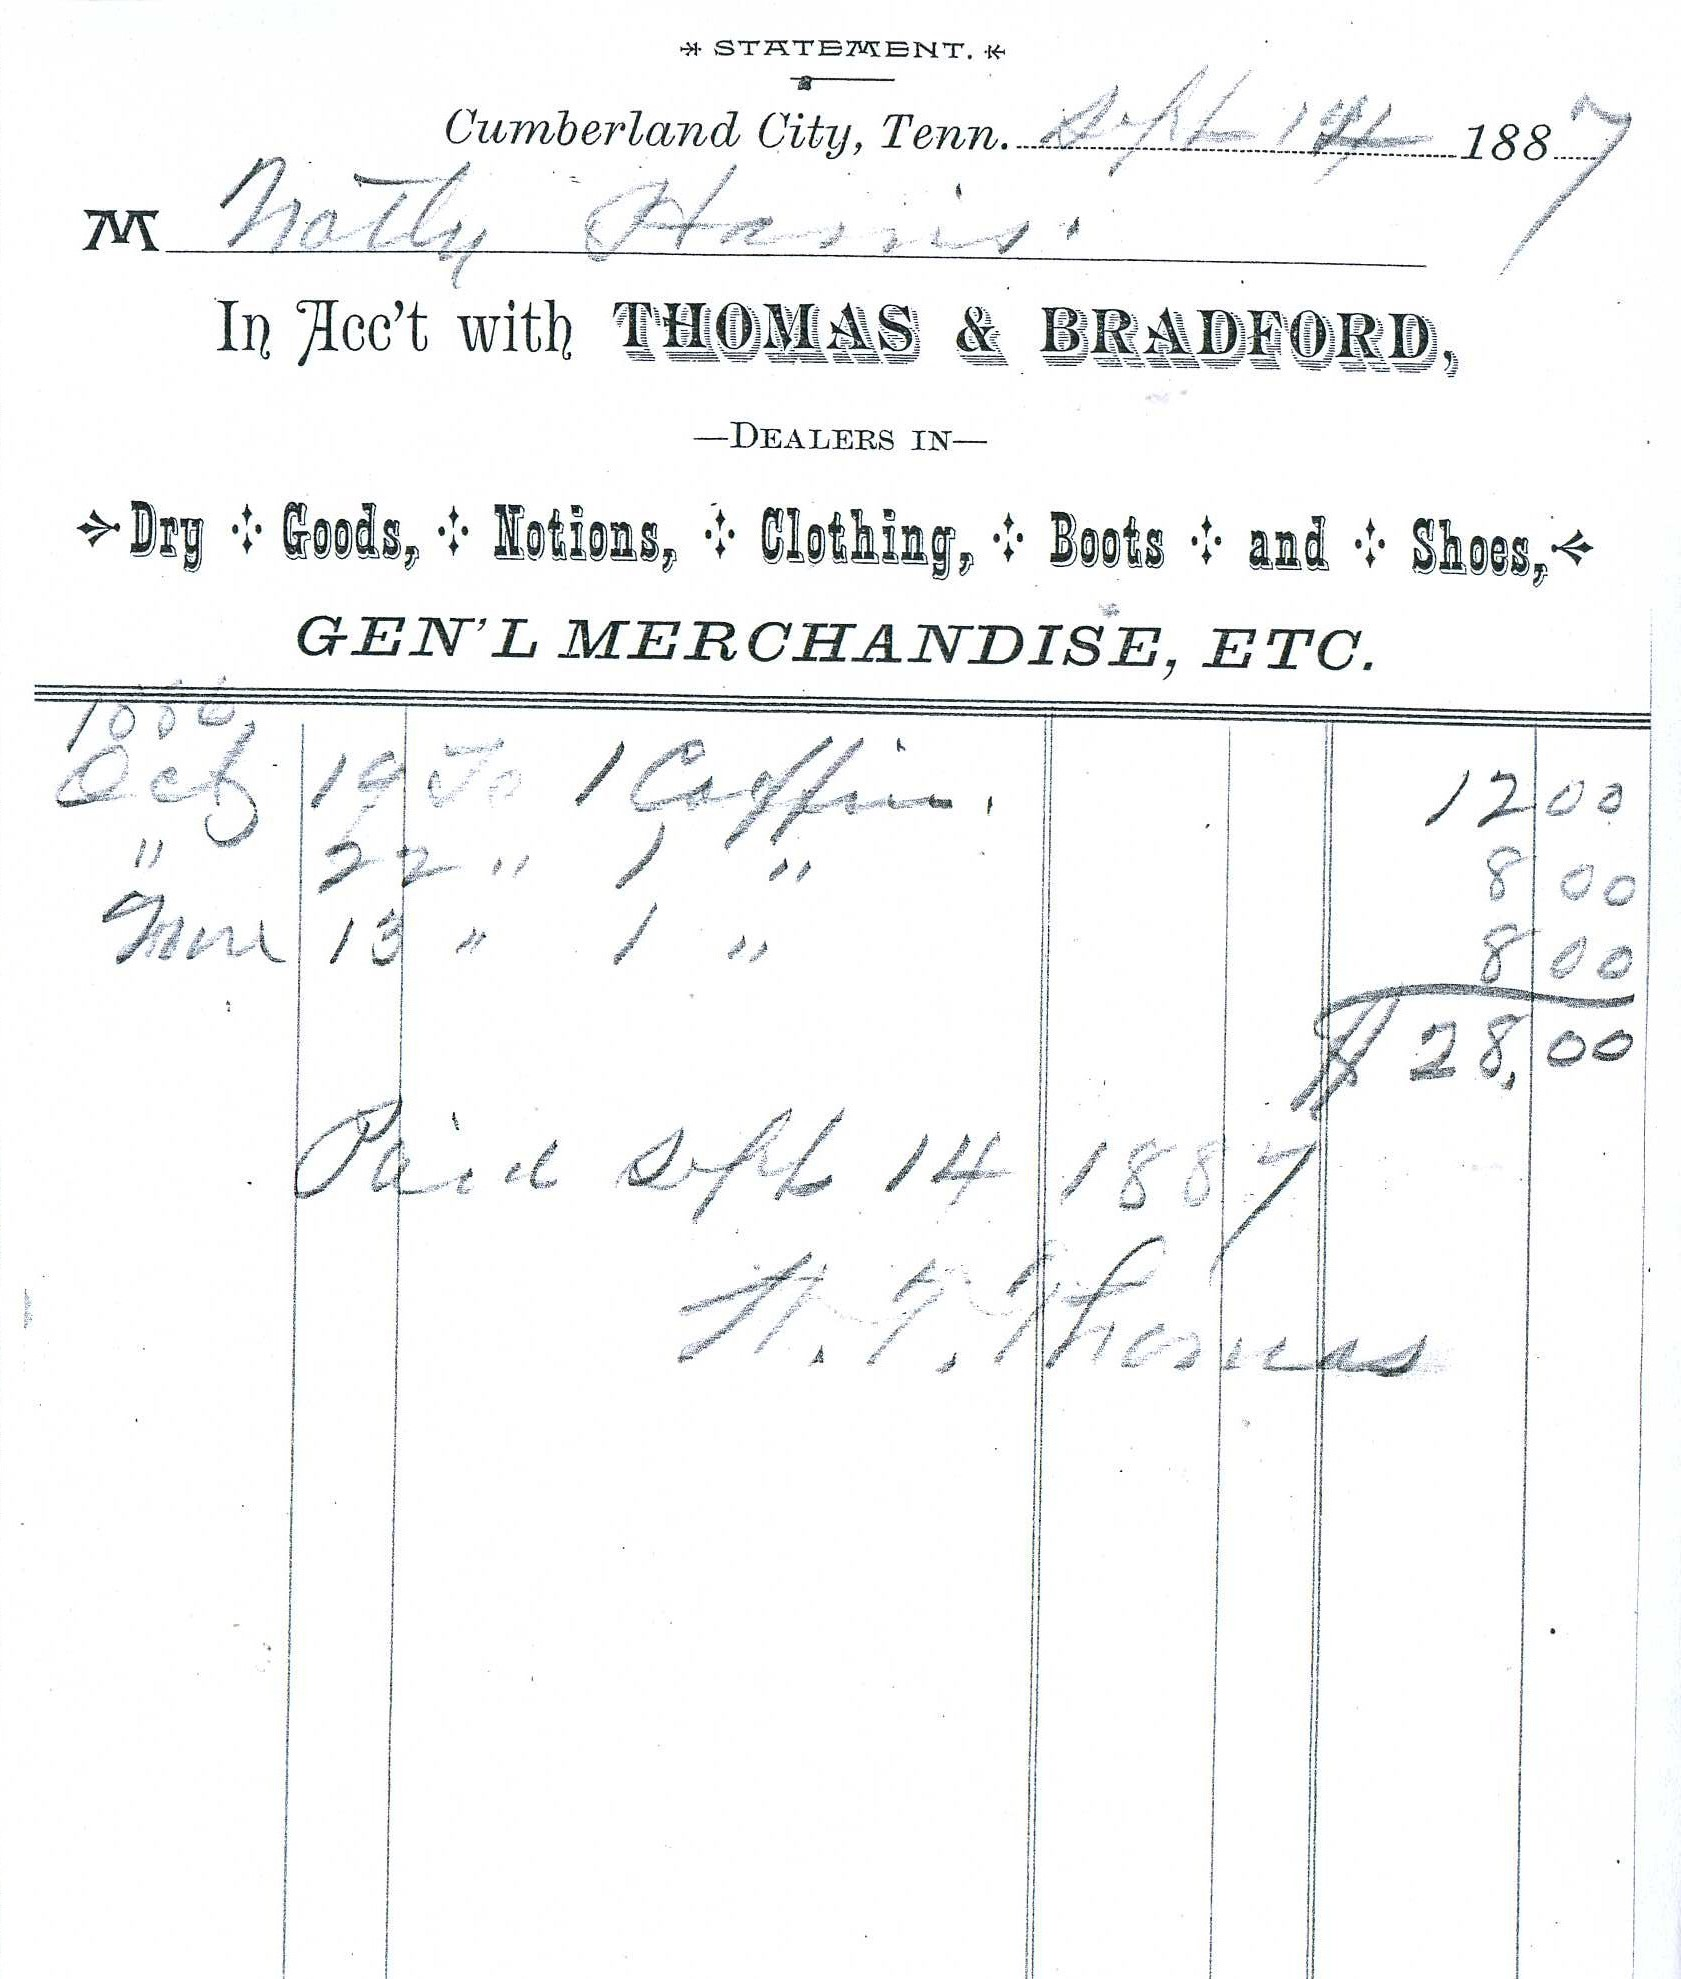 STATEMENT.
Cumberland City, Tenn. Sept 14 1887
M Natly Harris.
In Acc't with THOMAS & BRADFORD,
—DEALERS IN—
Dry Goods, Notions, Clothing, Boots and Shoes,
GEN'L MERCHANDISE, ETC.
1886,
Oct 19 To 1 Coffin. 12 00
" 22 " 1 " 8 00
13 " 1 " 8 00
$ 28,00
Paid Sept 14 1887
Thomas